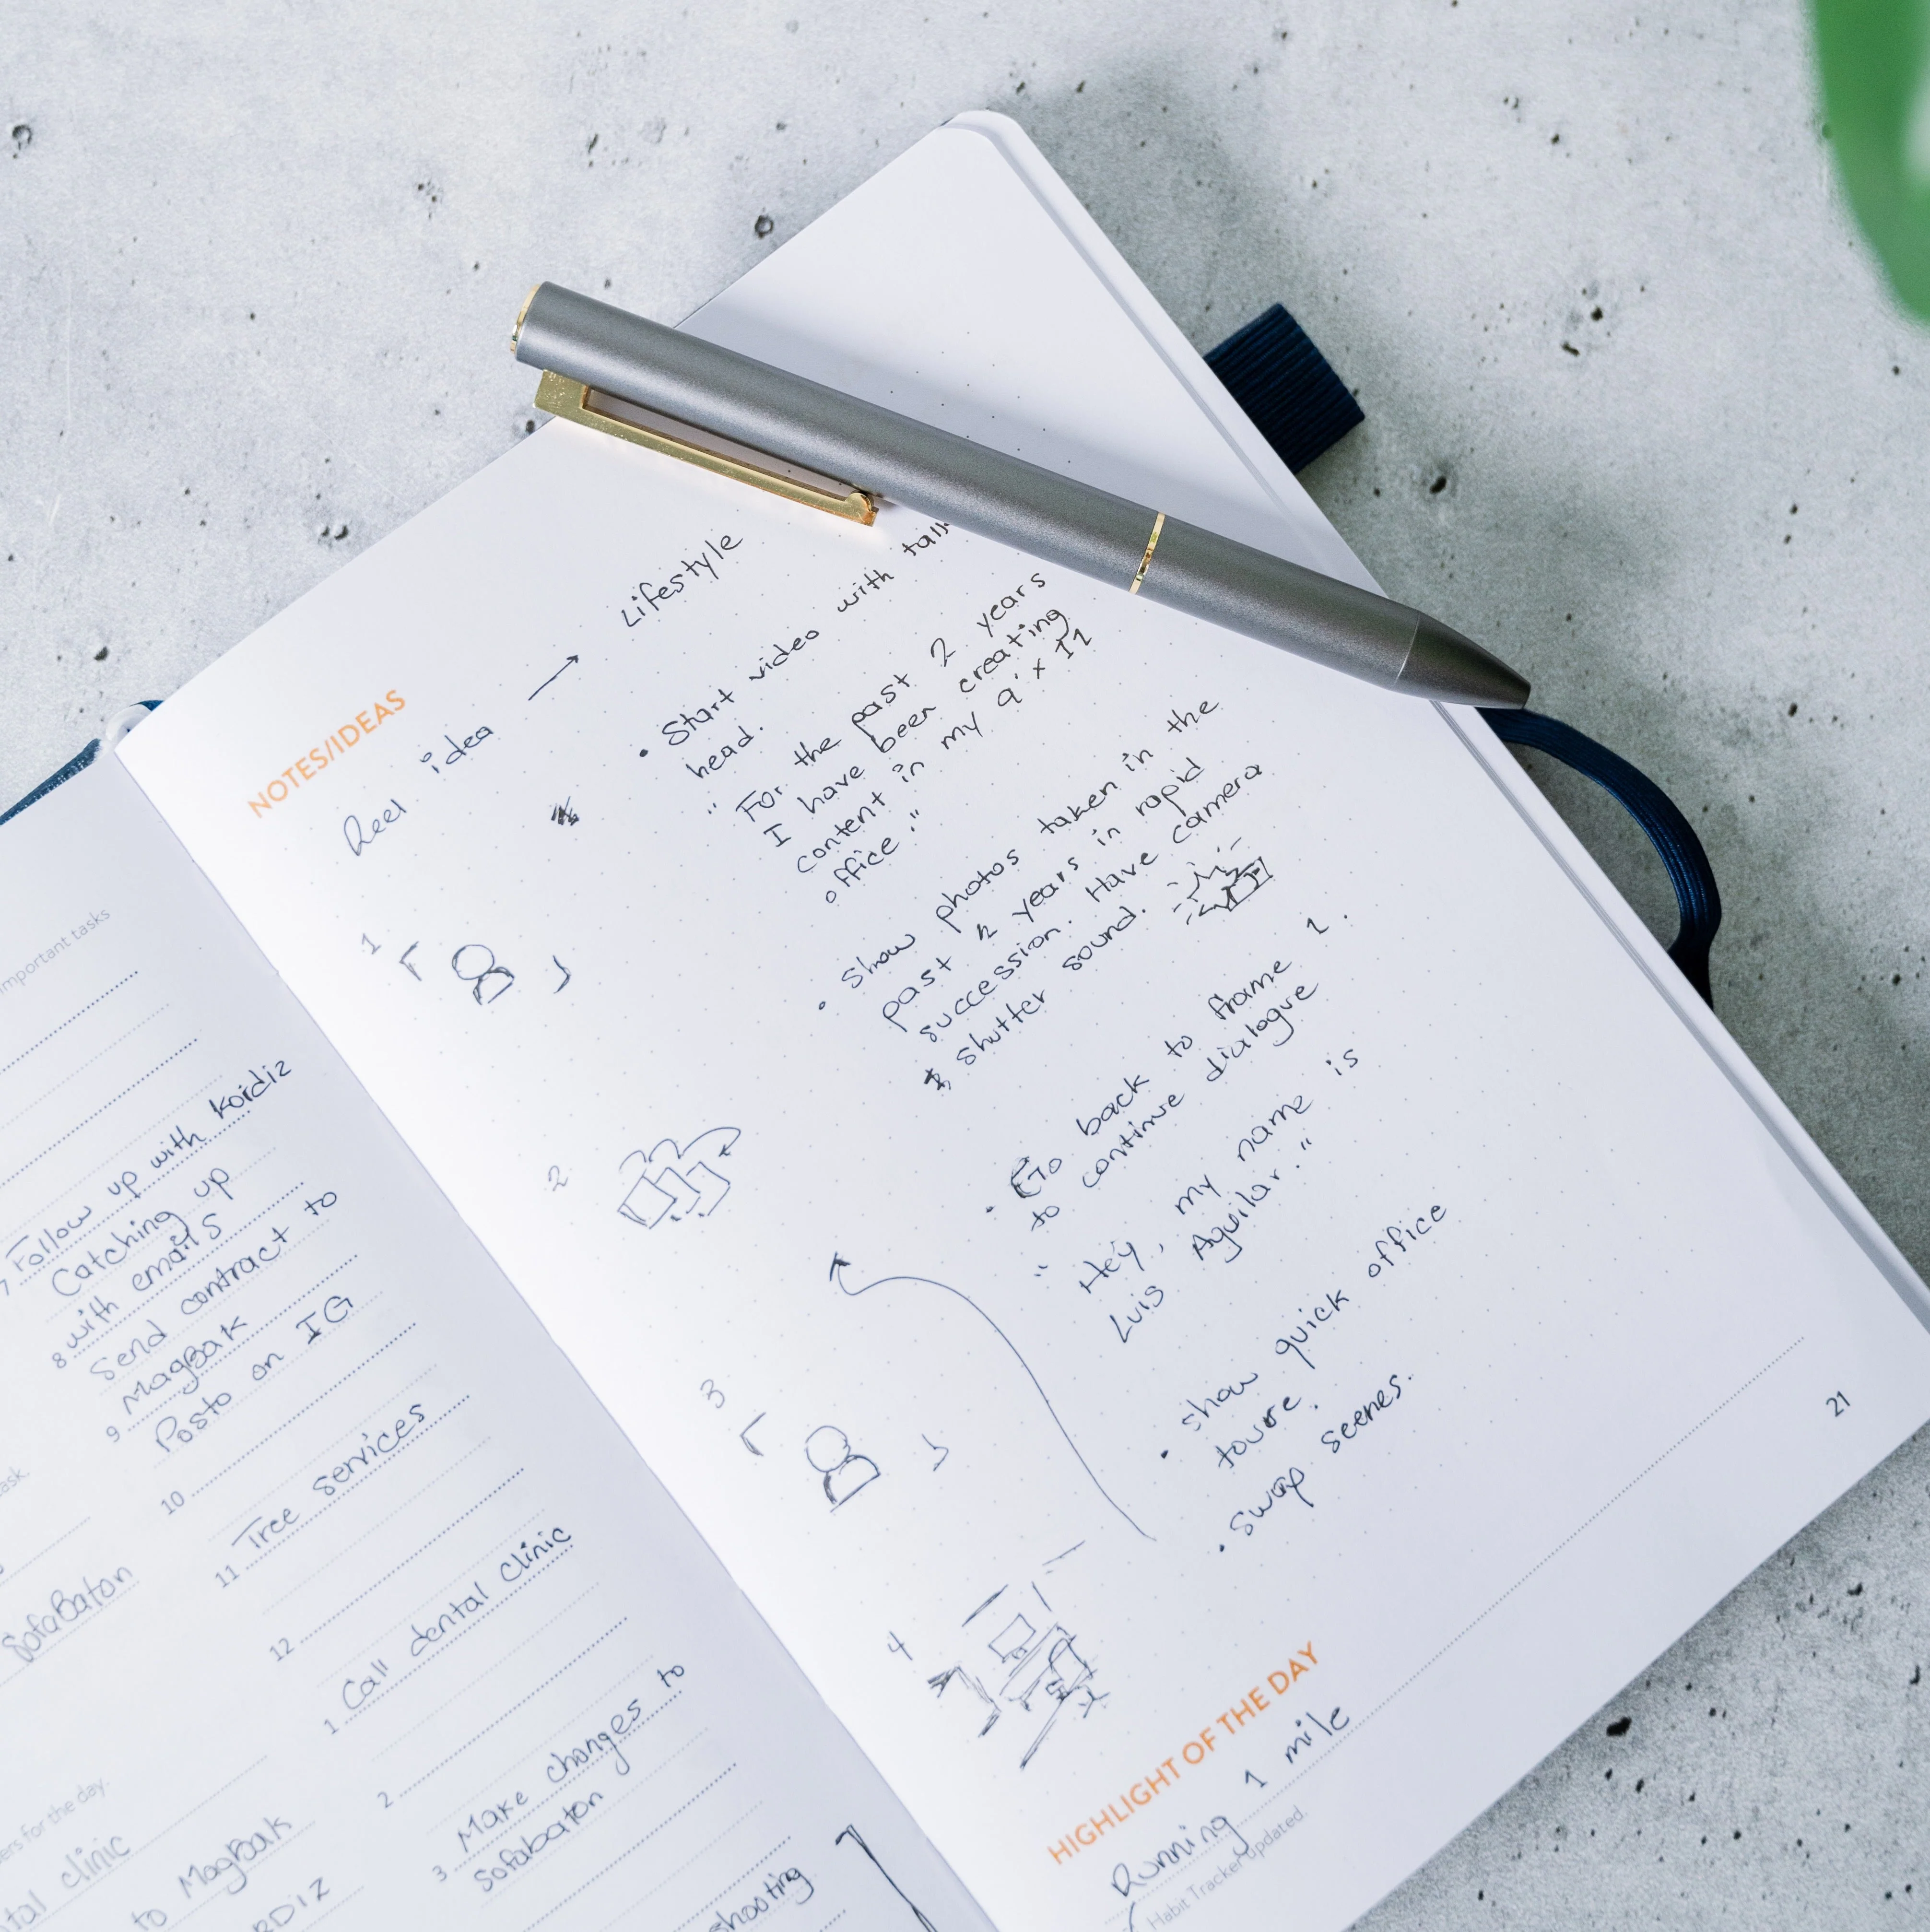 important tasks
7 Follow up with Kordiz
Catching up
8 with emails
Send contract to
9 MagBak
Posto on IG
10
11 Tree services
12
1 Call dental clinic
2
3 Make changes to
Sofabaton
shooting
SofaBaton
for the day.
clinic
to MagBak
NOTES/IDEAS
Reel idea → Lifestyle
• Start video with
head.
" For the past 2 years
I have been creating
content in my 9' x 11
office."
• Show photos taken in the
past 2 years in rapid
succession. Have camera
shutter sound.
• Go back to frame 1.
to continue dialogue
" Hey, my name is
Luis Aguilar."
• show quick office
toure.
• swap scenes.
1
2
3
4
21
HIGHLIGHT OF THE DAY
Running 1 mile
Habit Tracker updated.